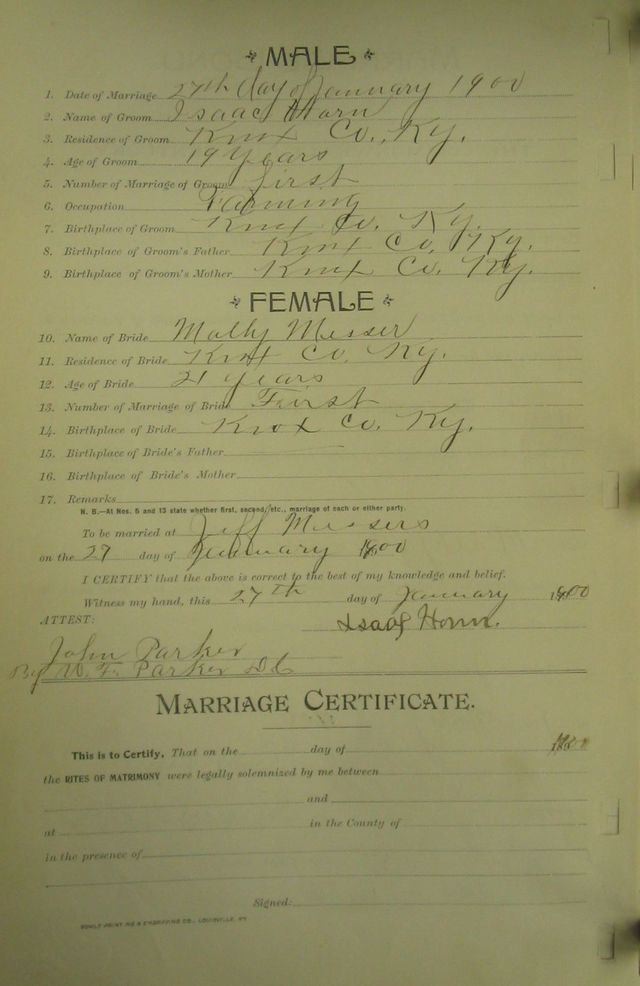 MALE
1. Date of Marriage 27th day of January 1900
2. Name of Groom Isaac Horn
3. Residence of Groom Knox Co., Ky.
4. Age of Groom 19 Years
5. Number of Marriage of Groom first
6. Occupation Farming
7. Birthplace of Groom Knox Co. Ky.
8. Birthplace of Groom's Father Knox Co, Ky.
9. Birthplace of Groom's Mother Knox Co. Ky.
FEMALE
10. Name of Bride Molly Messer
11. Residence of Bride Knox Co. Ky.
12. Age of Bride 21 years
13. Number of Marriage of Bride First
14. Birthplace of Bride Knox Co. Ky.
15. Birthplace of Bride's Father
16. Birthplace of Bride's Mother
17. Remarks
N. B.—At Nos. 5 and 13 state whether first, second, etc., marriage of each or either party.
To be married at Jeff Messers
on the 27 day of January 1900
I CERTIFY that the above is correct to the best of my knowledge and belief.
Witness my hand, this 27th day of January 1900
ATTEST: Isaac Horn.
John Parker
By W. F. Parker D.C.
MARRIAGE CERTIFICATE.
This is to Certify, That on the day of
the RITES OF MATRIMONY were legally solemnized by me between
and
at in the County of
in the presence of
Signed:
PRINTING & ENGRAVING CO., LOUISVILLE, KY.